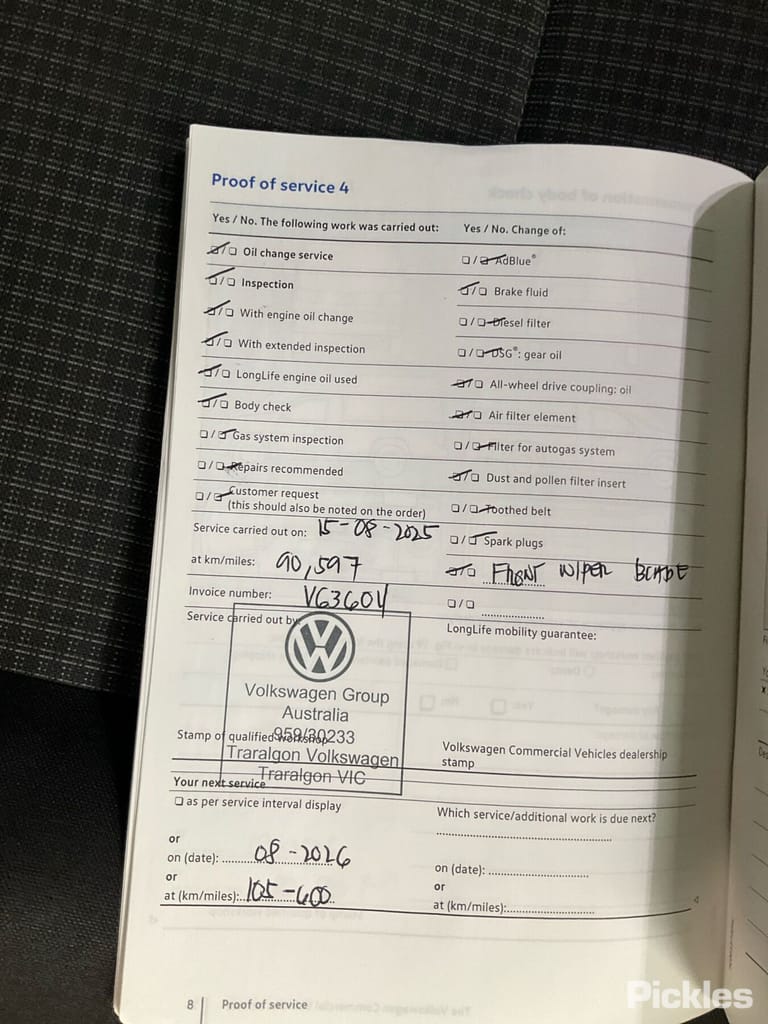 Proof of service 4
Yes / No. The following work was carried out:
Oil change service
Inspection
With engine oil change
With extended inspection
LongLife engine oil used
Body check
Gas system inspection
Repairs recommended
Customer request
(this should also be noted on the order)
Service carried out on: 15-08-2025
at km/miles: 90,597
Invoice number: VG3604
Service carried out by
Volkswagen Group
Australia
959/30233
Stamp of qualified workshop
Traralgon Volkswagen
Traralgon VIC
Yes / No. Change of:
AdBlue®
Brake fluid
Diesel filter
DSG®: gear oil
All-wheel drive coupling: oil
Air filter element
Filter for autogas system
Dust and pollen filter insert
Toothed belt
Spark plugs
FRONT WIPER BLADE
LongLife mobility guarantee:
Volkswagen Commercial Vehicles dealership
stamp
Your next service
as per service interval display
or
on (date): 08-2026
or
at (km/miles): 105-600
Which service/additional work is due next?
on (date):
or
at (km/miles):
8 | Proof of service
Pickles